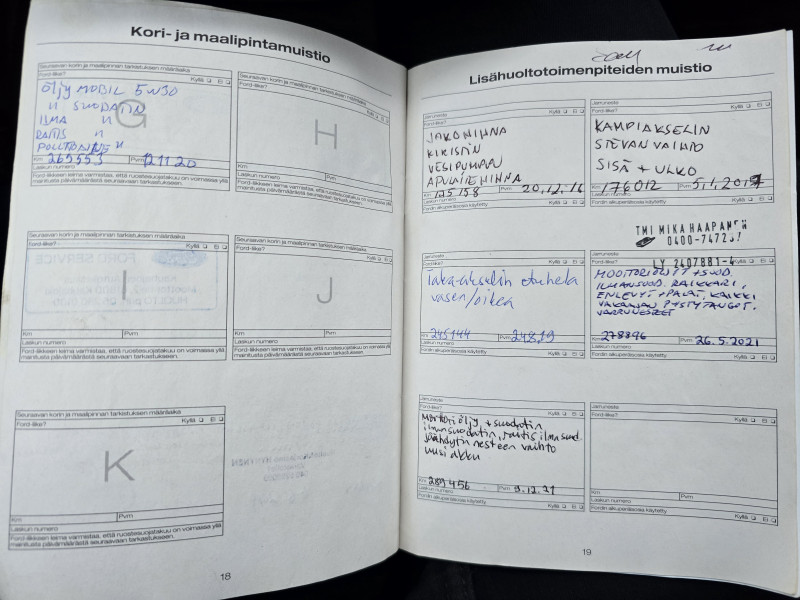 Kori- ja maalipintamuistio
Seuraavan korin ja maalipinnan tarkastuksen määräaika
Ford-liike? Kyllä Ei
ÖLJY MOBIL 5W30
" SUODATIN
ILMA "
RAITIS "
POLTTOAINE "
G
Km 265553 Pvm 12.11.20
Laskun numero
Ford-liikkeen leima varmistaa, että ruostesuojatakuu on voimassa yllä
mainitusta päivämäärästä seuraavaan tarkastukseen.
Seuraavan korin ja maalipinnan tarkastuksen määräaika
Ford-liike? Kyllä Ei
H
Km Pvm
Laskun numero
Ford-liikkeen leima varmistaa, että ruostesuojatakuu on voimassa yllä
mainitusta päivämäärästä seuraavaan tarkastukseen.
Seuraavan korin ja maalipinnan tarkastuksen määräaika
Ford-liike? Kyllä Ei
FORD SERVICE
I
Km Pvm
Laskun numero
Ford-liikkeen leima varmistaa, että ruostesuojatakuu on voimassa yllä
mainitusta päivämäärästä seuraavaan tarkastukseen.
Seuraavan korin ja maalipinnan tarkastuksen määräaika
Ford-liike? Kyllä Ei
J
Km Pvm
Laskun numero
Ford-liikkeen leima varmistaa, että ruostesuojatakuu on voimassa yllä
mainitusta päivämäärästä seuraavaan tarkastukseen.
Seuraavan korin ja maalipinnan tarkastuksen määräaika
Ford-liike? Kyllä Ei
K
Km Pvm
Laskun numero
Ford-liikkeen leima varmistaa, että ruostesuojatakuu on voimassa yllä
mainitusta päivämäärästä seuraavaan tarkastukseen.
18
Lisähuoltotoimenpiteiden muistio
Jarruneste
Ford-liike? Kyllä Ei
JAKOHIHNA
KIRISTIN
VESIPUMPUN
APULAITEHIHNA
Km 175758 Pvm 20.12.16
Laskun numero
Fordin alkuperäisosia käytetty Kyllä Ei
Jarruneste
Ford-liike? Kyllä Ei
KAMPIAKSELIN
STEVAN VAIHTO
SISÄ + ULKO
Km 176012 Pvm 5.1.2017
Laskun numero
Fordin alkuperäisosia käytetty Kyllä Ei
TMI MIKA HAAPANEN
0400-7472
LY 2407881-4
Jarruneste
Ford-liike? Kyllä Ei
Taka-akselin etuhela
vasen/oikea
Km 245144 Pvm 24.8.19
Laskun numero
Fordin alkuperäisosia käytetty Kyllä Ei
Ford-liike? Kyllä Ei
MOOTTORIÖLJYT + SUOD.
ILMANSUOD. RAIKKARI,
ENLEVYT + PALAT, KAIKKI
VAKAAJAN PYSTYTANGOT.
JARRUNESTEET
Km 278896 Pvm 26.5.2021
Laskun numero
Fordin alkuperäisosia käytetty Kyllä Ei
Jarruneste
Ford-liike? Kyllä Ei
Moottoriöljy + suodatin
ilmansuodatin, raitis ilmansuod.
jäähdytin nesteen vaihto
uusi akku
Km 289456 Pvm 9.12.21
Laskun numero
Fordin alkuperäisosia käytetty Kyllä Ei
Jarruneste
Ford-liike? Kyllä Ei
Km Pvm
Laskun numero
Fordin alkuperäisosia käytetty Kyllä Ei
19